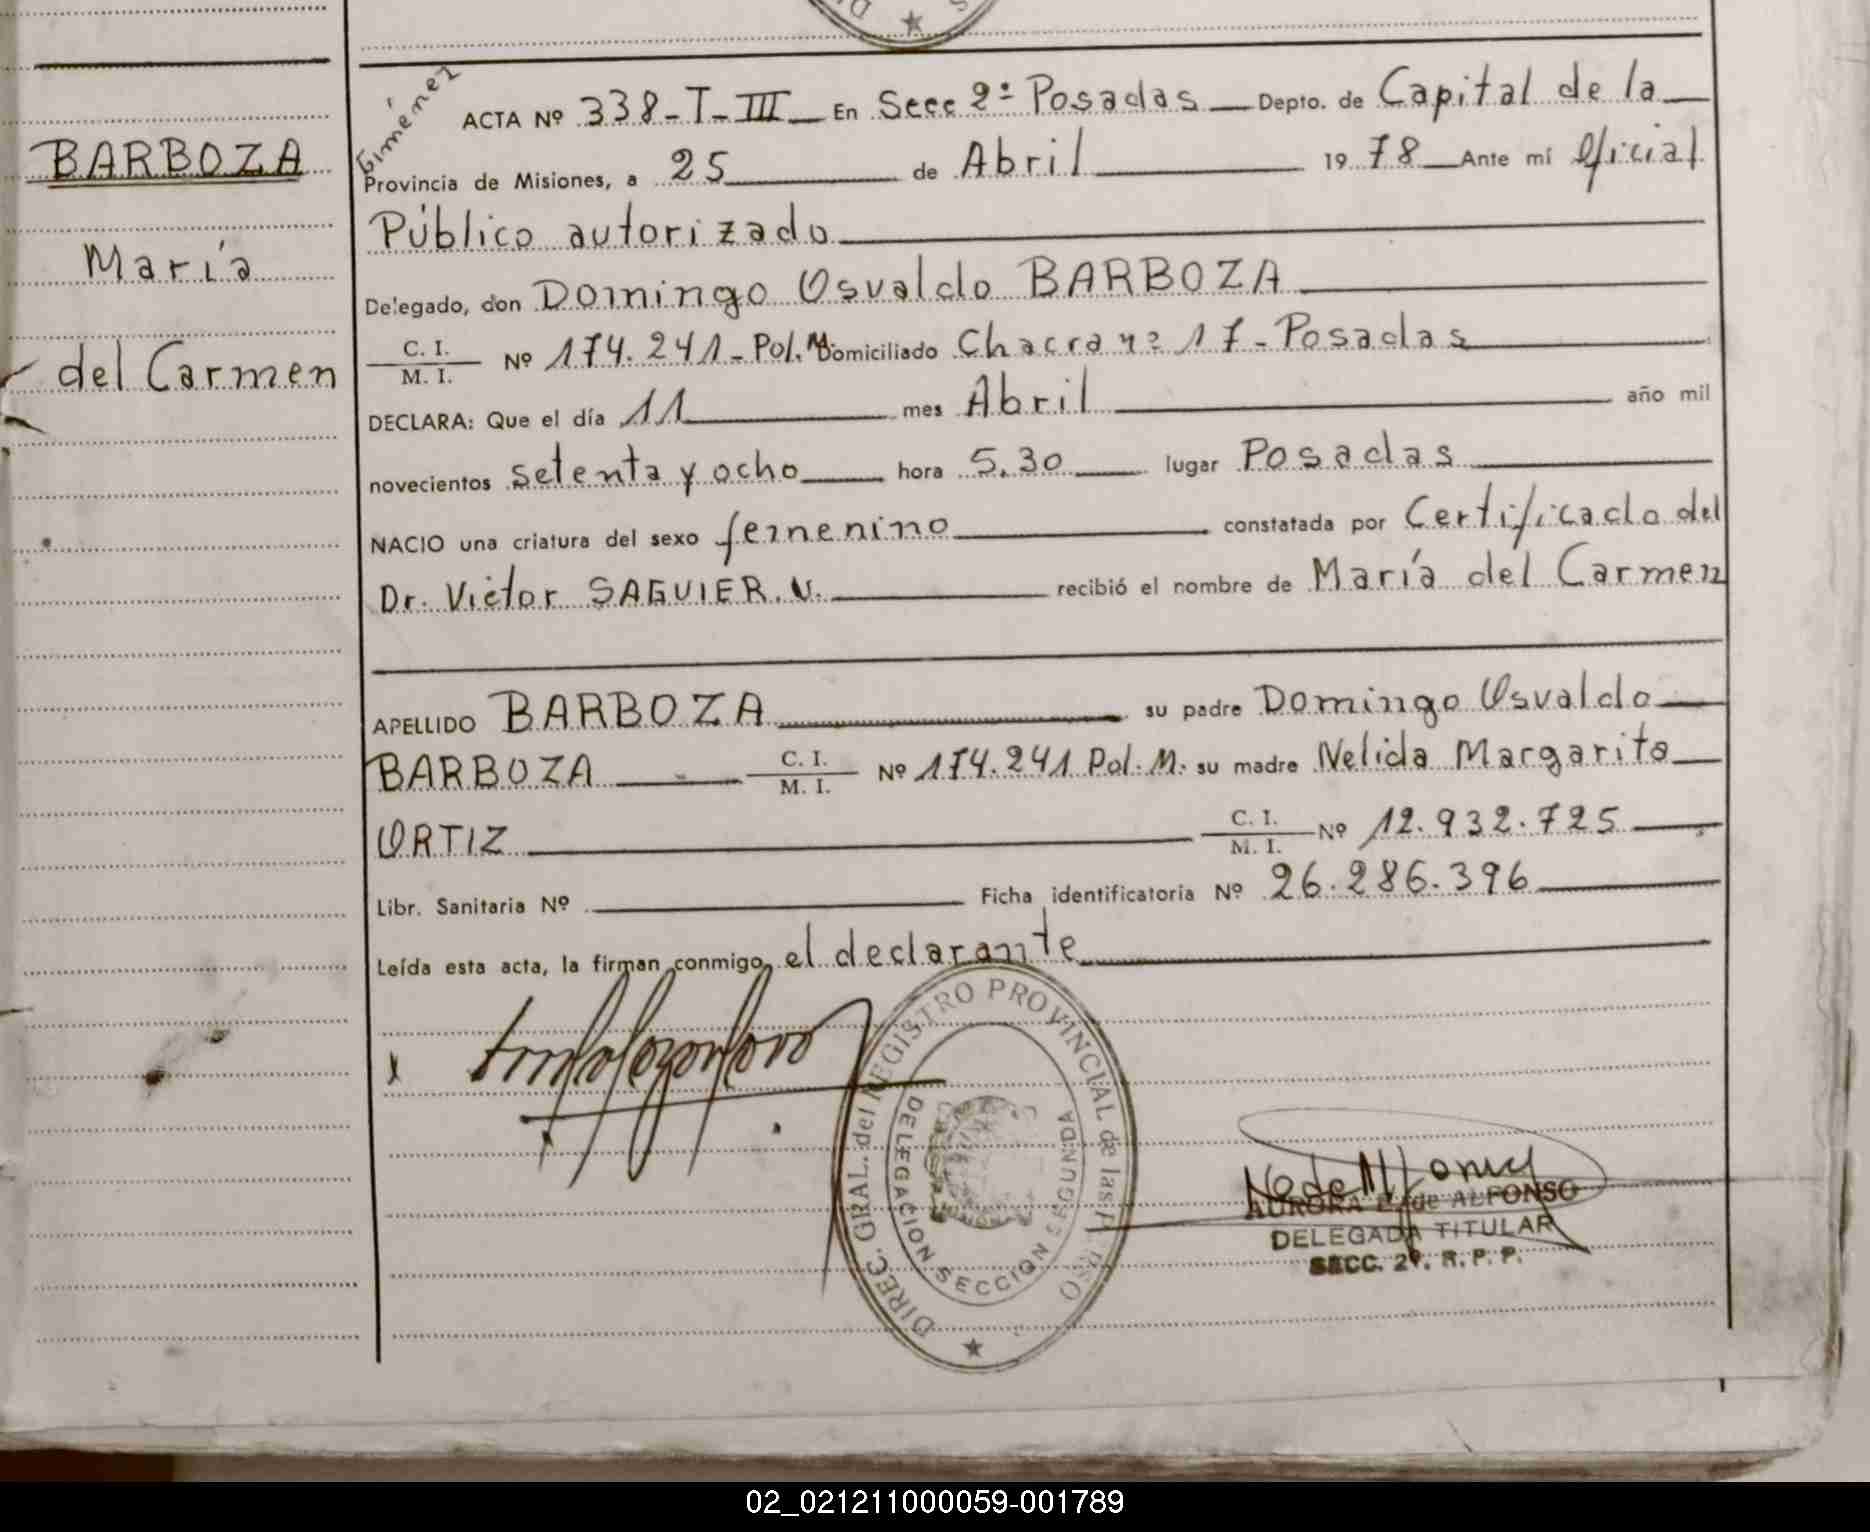 BARBOZA
María
del Carmen
Giménez
ACTA Nº 338-T-III En Secc 2ª Posadas Depto. de Capital de la
Provincia de Misiones, a 25 de Abril 1978 Ante mí Oficial
Público autorizado
Delegado, don Domingo Osvaldo BARBOZA
C. I.
M. I. Nº 174.241-Pol. M Domiciliado Chacra nº 17-Posadas
DECLARA: Que el día 11 mes Abril año mil
novecientos setenta y ocho hora 5.30 lugar Posadas
NACIO una criatura del sexo femenino constatada por Certificado del
Dr. Victor SAGUIER. N. recibió el nombre de María del Carmen
APELLIDO BARBOZA su padre Domingo Osvaldo
BARBOZA C. I. M. I. Nº 174.241 Pol. M. su madre Nelida Margarita
ORTIZ C. I. M. I. Nº 12.932.725
Libr. Sanitaria Nº Ficha identificatoria Nº 26.286.396
Leída esta acta, la firman conmigo, el declarante
DIREC. GRAL. del REGISTRO PROVINCIAL de las
DELEGACION SECCION SEGUNDA
AURORA de ALFONSO
DELEGADA TITULAR
SECC. 2ª. R. P. P.
02_021211000059-001789